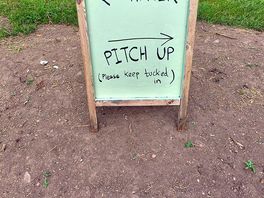 PITCH UP
(Please keep tucked)
in